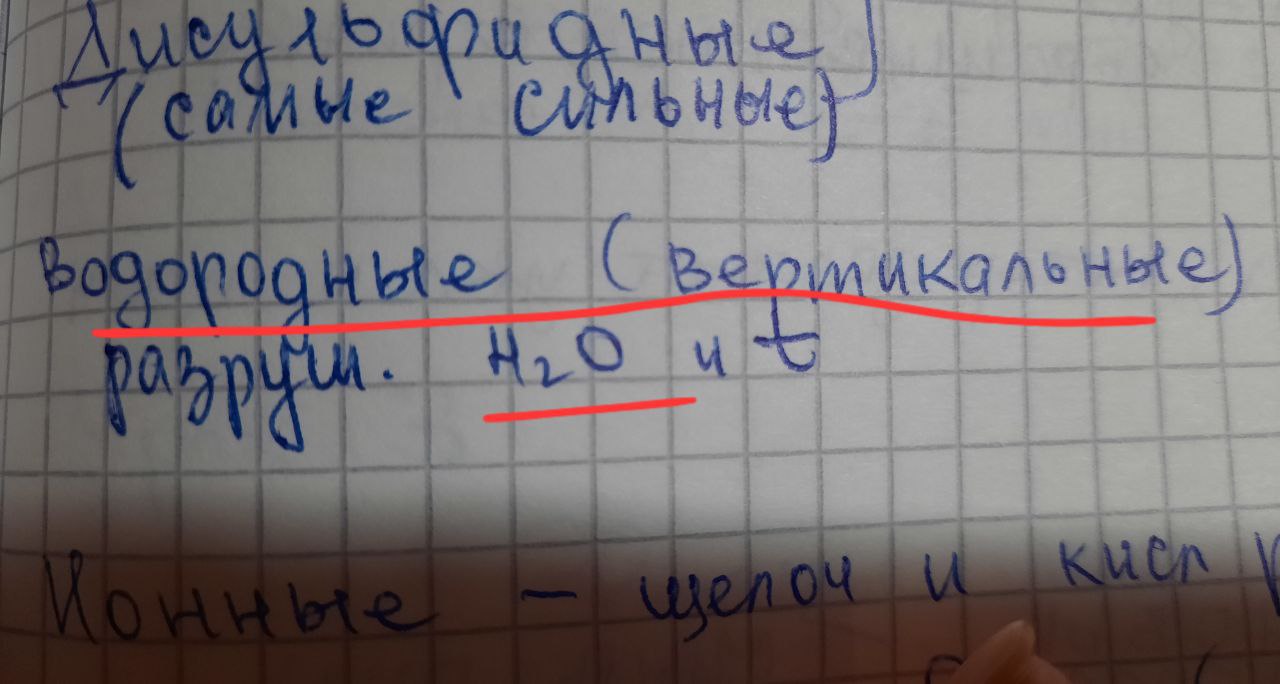 Дисульфидные
(самые сильные)
водородные (вертикальные)
разруш. H₂O и t
Ионные – щелоч и кисл